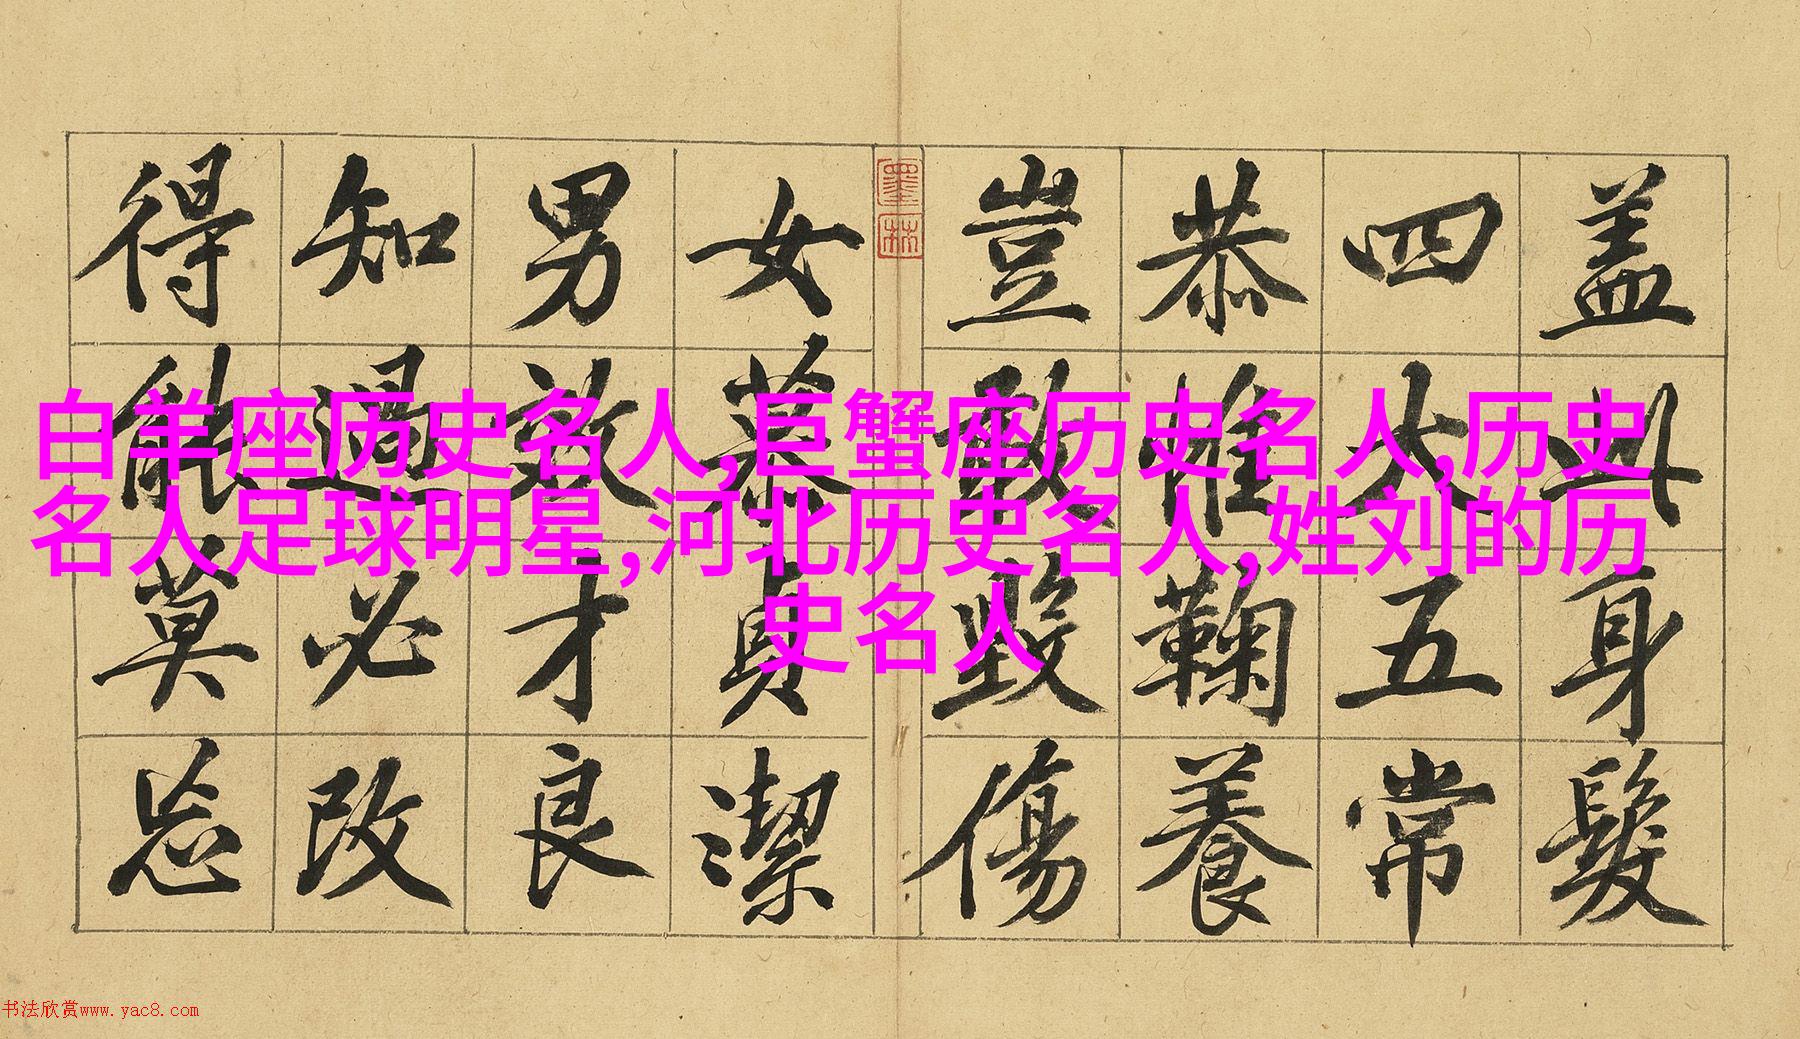 白羊座历史名人,巨蟹座历史名人,历史
名人足球明星,河北历史名人,姓刘的历
史名人
盖此身髮
四大五常
恭惟鞠養
豈敢毀傷
墨林
女慕貞潔
男效才良
知過必改
得能莫忘
书法欣赏www.yac8.com